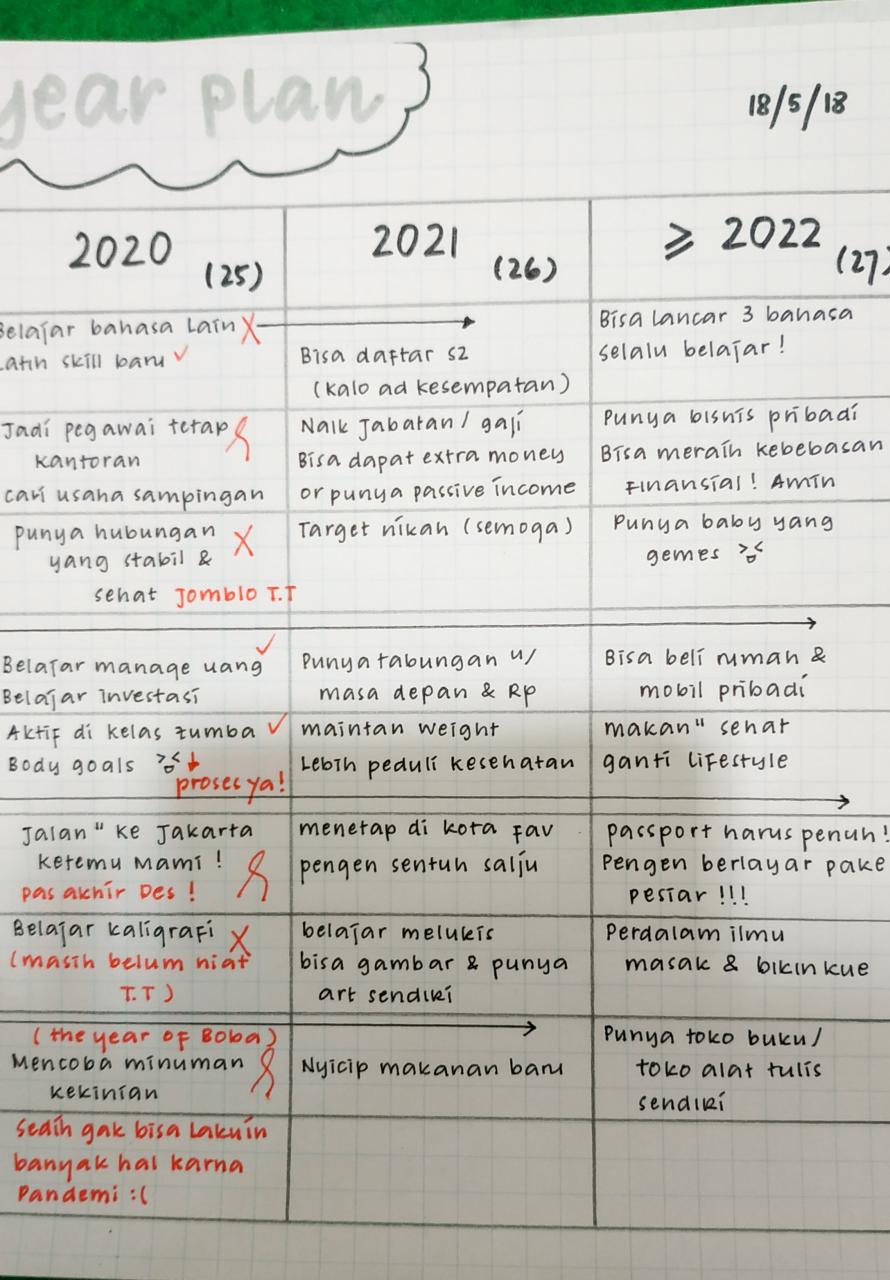 year plan
18/5/18
2020 (25)
Belajar bahasa Lain X
Latih skill baru ✓
Jadi pegawai tetap
kantoran
cari usaha sampingan
Punya hubungan X
yang stabil &
sehat Jomblo T.T
✓
Belajar manage uang
Belajar investasi
Aktif di kelas zumba ✓
Body goals
proses ya!
Jalan" ke Jakarta
ketemu Mami !
pas akhir Des !
Belajar kaligrafi X
(masih belum niat
T.T )
( the year of Boba)
Mencoba minuman
kekinian
Sedih gak bisa Lakuin
banyak hal karna
Pandemi :(
2021 (26)
Bisa daftar S2
(kalo ad kesempatan)
Naik Jabatan / gaji
Bisa dapat extra money
or punya passive income
Target nikah (semoga)
Punya tabungan u/
masa depan & Rp
maintan weight
Lebih peduli kesehatan
menetap di kota Fav
pengen sentuh salju
belajar melukis
bisa gambar & punya
art sendiri
Nyicip makanan baru
≥ 2022 (27)
Bisa Lancar 3 bahasa
selalu belajar !
Punya bisnis pribadi
Bisa meraih kebebasan
Finansial ! Amin
Punya baby yang
gemes
Bisa beli rumah &
mobil pribadi
makan" sehat
ganti Lifestyle
passport harus penuh !
Pengen berlayar pake
pesiar !!!
Perdalam ilmu
masak & bikin kue
Punya toko buku /
toko alat tulis
sendiri